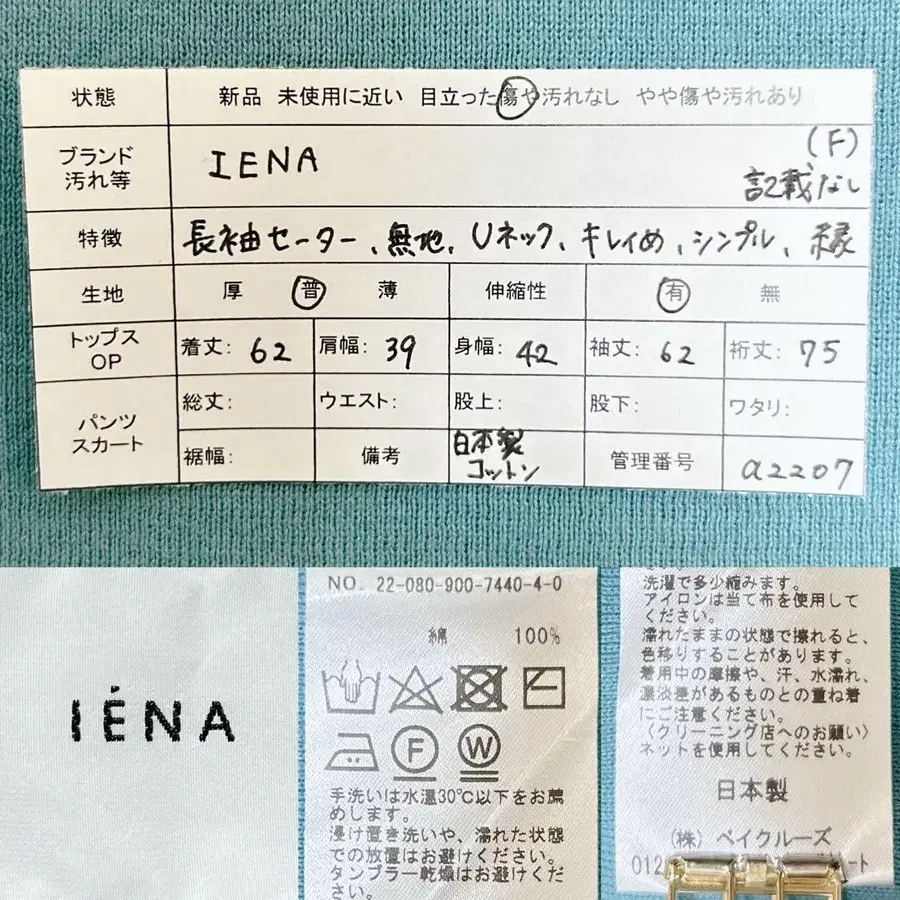 状態 新品 未使用に近い 目立った傷や汚れなし やや傷や汚れあり
ブランド
汚れ等
IENA
(F)
記載なし
特徴 長袖セーター、無地、Uネック、キレイめ、シンプル、緑
生地 厚 普 薄 伸縮性 有 無
トップス
OP
着丈: 62 肩幅: 39 身幅: 42 袖丈: 62 裄丈: 75
パンツ
スカート
総丈: ウエスト: 股上: 股下: ワタリ:
裾幅: 備考
日本製
コットン
管理番号 a2207
IÉNA
NO. 22-080-900-7440-4-0
綿 100%
F W
手洗いは水温30℃以下をお薦
めします。
浸け置き洗いや、濡れた状態
での放置はお避けください。
タンブラー乾燥はお避けくださ
い。
洗濯で多少縮みます。
アイロンは当て布を使用して
ください。
濡れたままの状態で擦れると、
色移りすることがあります。
着用中の摩擦や、汗、水濡れ、
濃淡差があるものとの重ね着
にご注意ください。
〈クリーニング店へのお願い〉
ネットを使用してください。
日本製
(株) ベイクルーズ
012